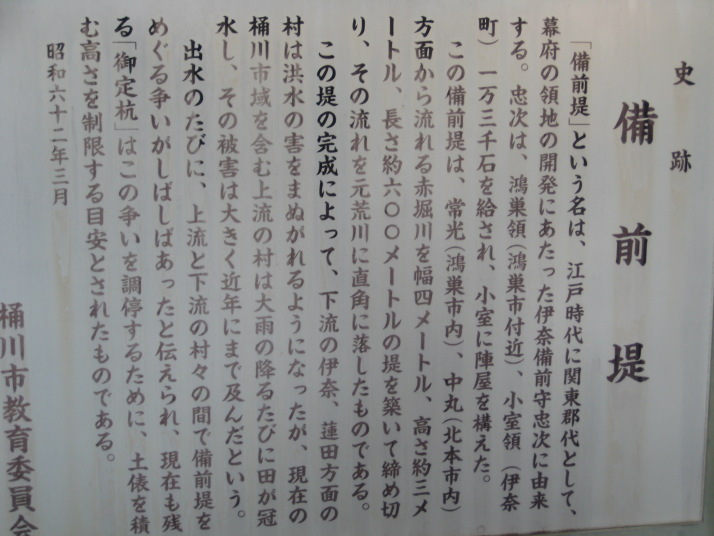 史跡
備前堤
「備前堤」という名は、江戸時代に関東郡代として、
幕府の領地の開発にあたった伊奈備前守忠次に由来
する。忠次は、鴻巣領（鴻巣市付近）、小室領（伊奈
町）一万三千石を給され、小室に陣屋を構えた。
この備前堤は、常光（鴻巣市内）、中丸（北本市内）
方面から流れる赤堀川を幅四メートル、高さ約三メ
ートル、長さ約六〇〇メートルの堤を築いて締め切
り、その流れを元荒川に直角に落したものである。
この堤の完成によって、下流の伊奈、蓮田方面の
村は洪水の害をまぬがれるようになったが、現在の
桶川市域を含む上流の村は大雨の降るたびに田が冠
水し、その被害は大きく近年にまで及んだという。
出水のたびに、上流と下流の村々の間で備前堤を
めぐる争いがしばしばあったと伝えられ、現在も残
る「御定杭」はこの争いを調停するために、土俵を積
む高さを制限する目安とされたものである。
昭和六十二年三月
桶川市教育委員会